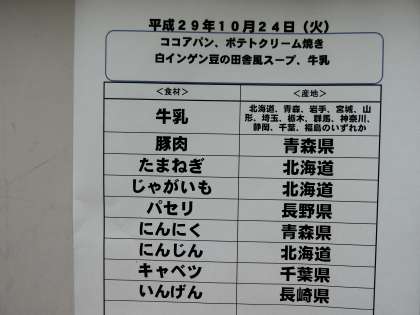 平成29年10月24日（火）
ココアパン、ポテトクリーム焼き
白インゲン豆の田舎風スープ、牛乳
＜食材＞ ＜産地＞
牛乳 北海道、青森、岩手、宮城、山
形、埼玉、栃木、群馬、神奈川、
静岡、千葉、福島のいずれか
豚肉 青森県
たまねぎ 北海道
じゃがいも 北海道
パセリ 長野県
にんにく 青森県
にんじん 北海道
キャベツ 千葉県
いんげん 長崎県